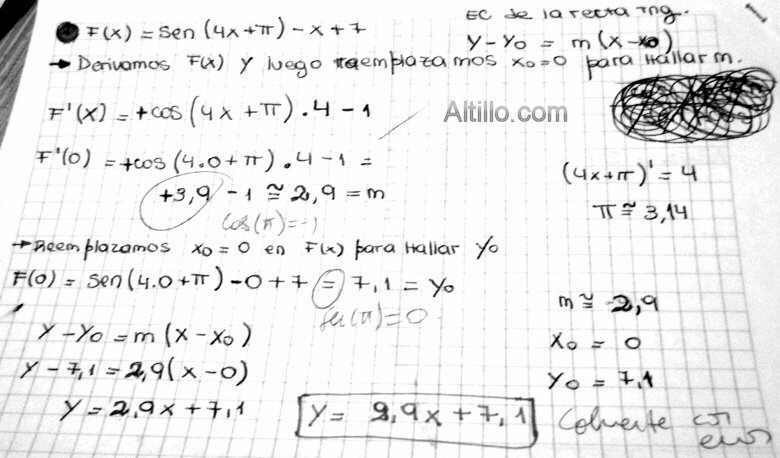 F(x) = sen(4x+π) - x + 7
EC de la recta Tng.
y - y₀ = m(x - x₀)
→ Derivamos F(x) y luego reemplazamos x₀=0 para Hallar m.
F'(x) = +cos(4x+π).4 - 1
Altillo.com
F'(0) = +cos(4.0+π).4 - 1 =
+3,9 - 1 ≅ 2,9 = m
cos(π) = -1
(4x+π)' = 4
π ≅ 3,14
→ Reemplazamos x₀=0 en F(x) para Hallar y₀
F(0) = sen(4.0+π) - 0 + 7 = 7,1 = y₀
sen(π) = 0
y - y₀ = m(x - x₀)
y - 7,1 = 2,9(x - 0)
y = 2,9x + 7,1
y = 2,9x + 7,1
m ≅ 2,9
x₀ = 0
y₀ = 7,1